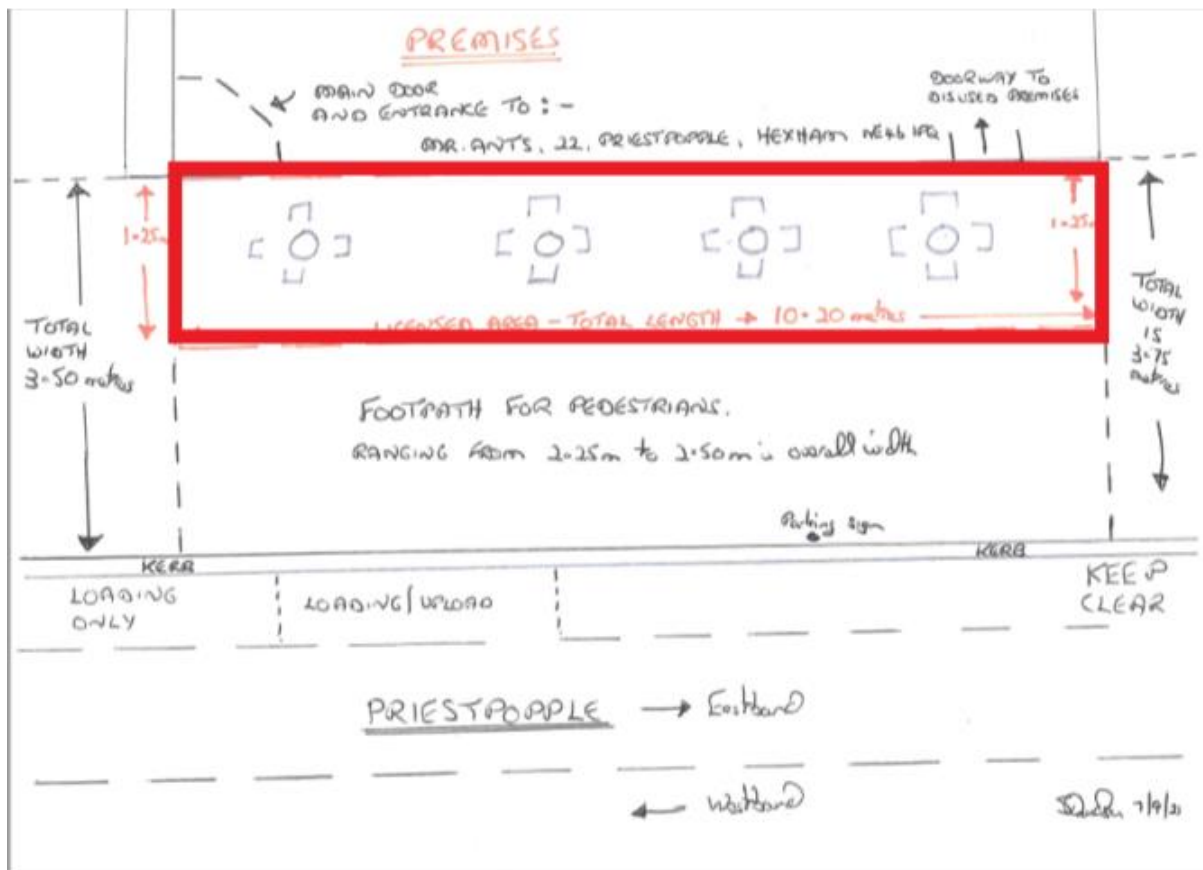 PREMISES
MAIN DOOR
AND ENTRANCE TO :-
MR. ANTS, 22, PRIESTPOPPLE, HEXHAM NE46 1PQ
DOORWAY TO
DISUSED PREMISES
1.25m
1.25m
LICENSED AREA - TOTAL LENGTH → 10.20 metres
TOTAL
WIDTH
3.50 metres
TOTAL
WIDTH
IS
3.75
metres
FOOTPATH FOR PEDESTRIANS.
RANGING FROM 2.25m to 2.50m in overall width
Parking sign
KERB
KERB
LOADING
ONLY
LOADING/UPLOAD
KEEP
CLEAR
PRIESTPOPPLE → Eastbound
← Westbound